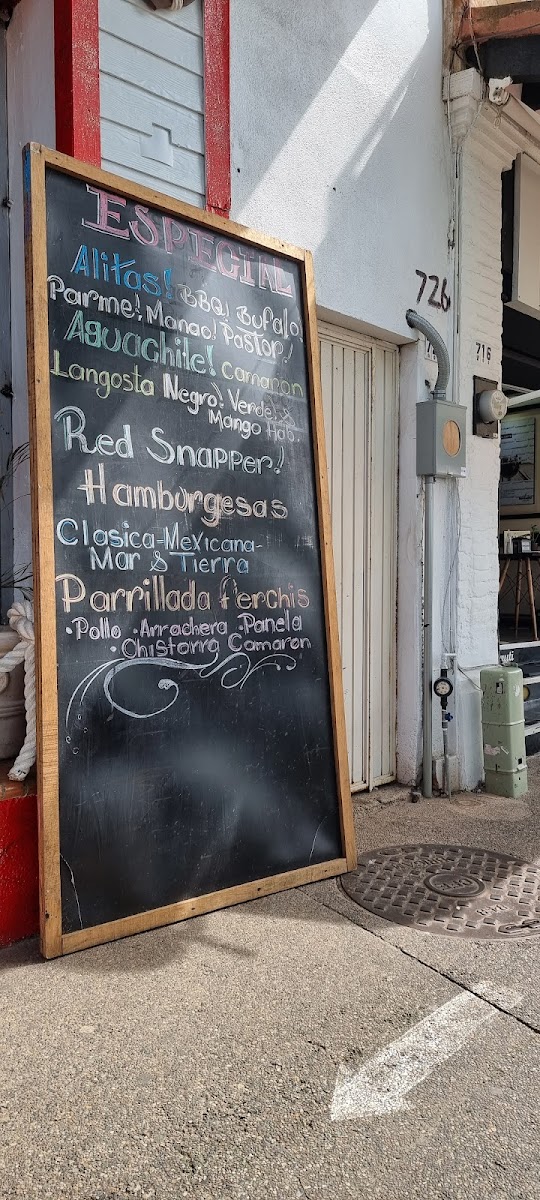 ESPECIAL
Alitas! BBQ! Bufalo!
Parme! Mango! Pastor!
Aguachile! Camaron
Langosta Negro! Verde! &
Mango Hab.
Red Snapper!
Hamburgesas
Clasica-Mexicana-
Mar & Tierra
Parrillada Perchis
·Pollo ·Arrachera ·Panela
·Chistorra Camaron
726
716